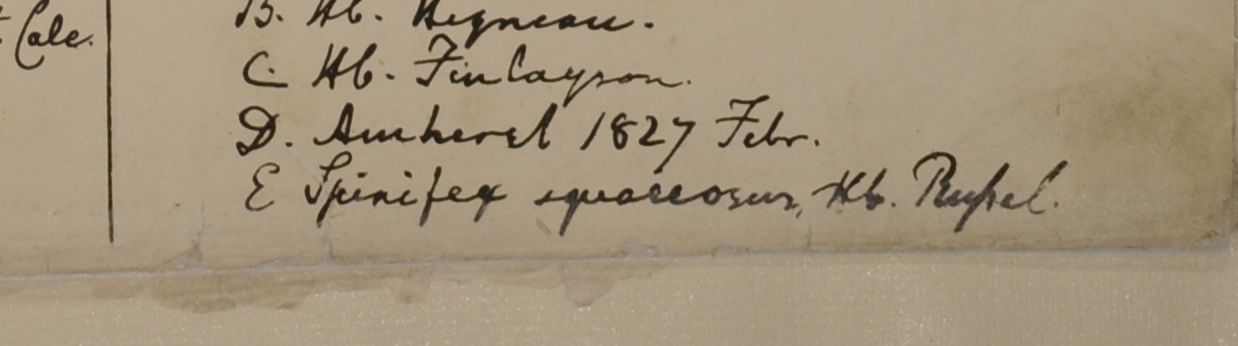 Cale.
B. Hb. Heyneau.
C Hb. Finlayson.
D. Amherst 1827 Febr.
E Spinifex squarrosus, Hb. Russel.